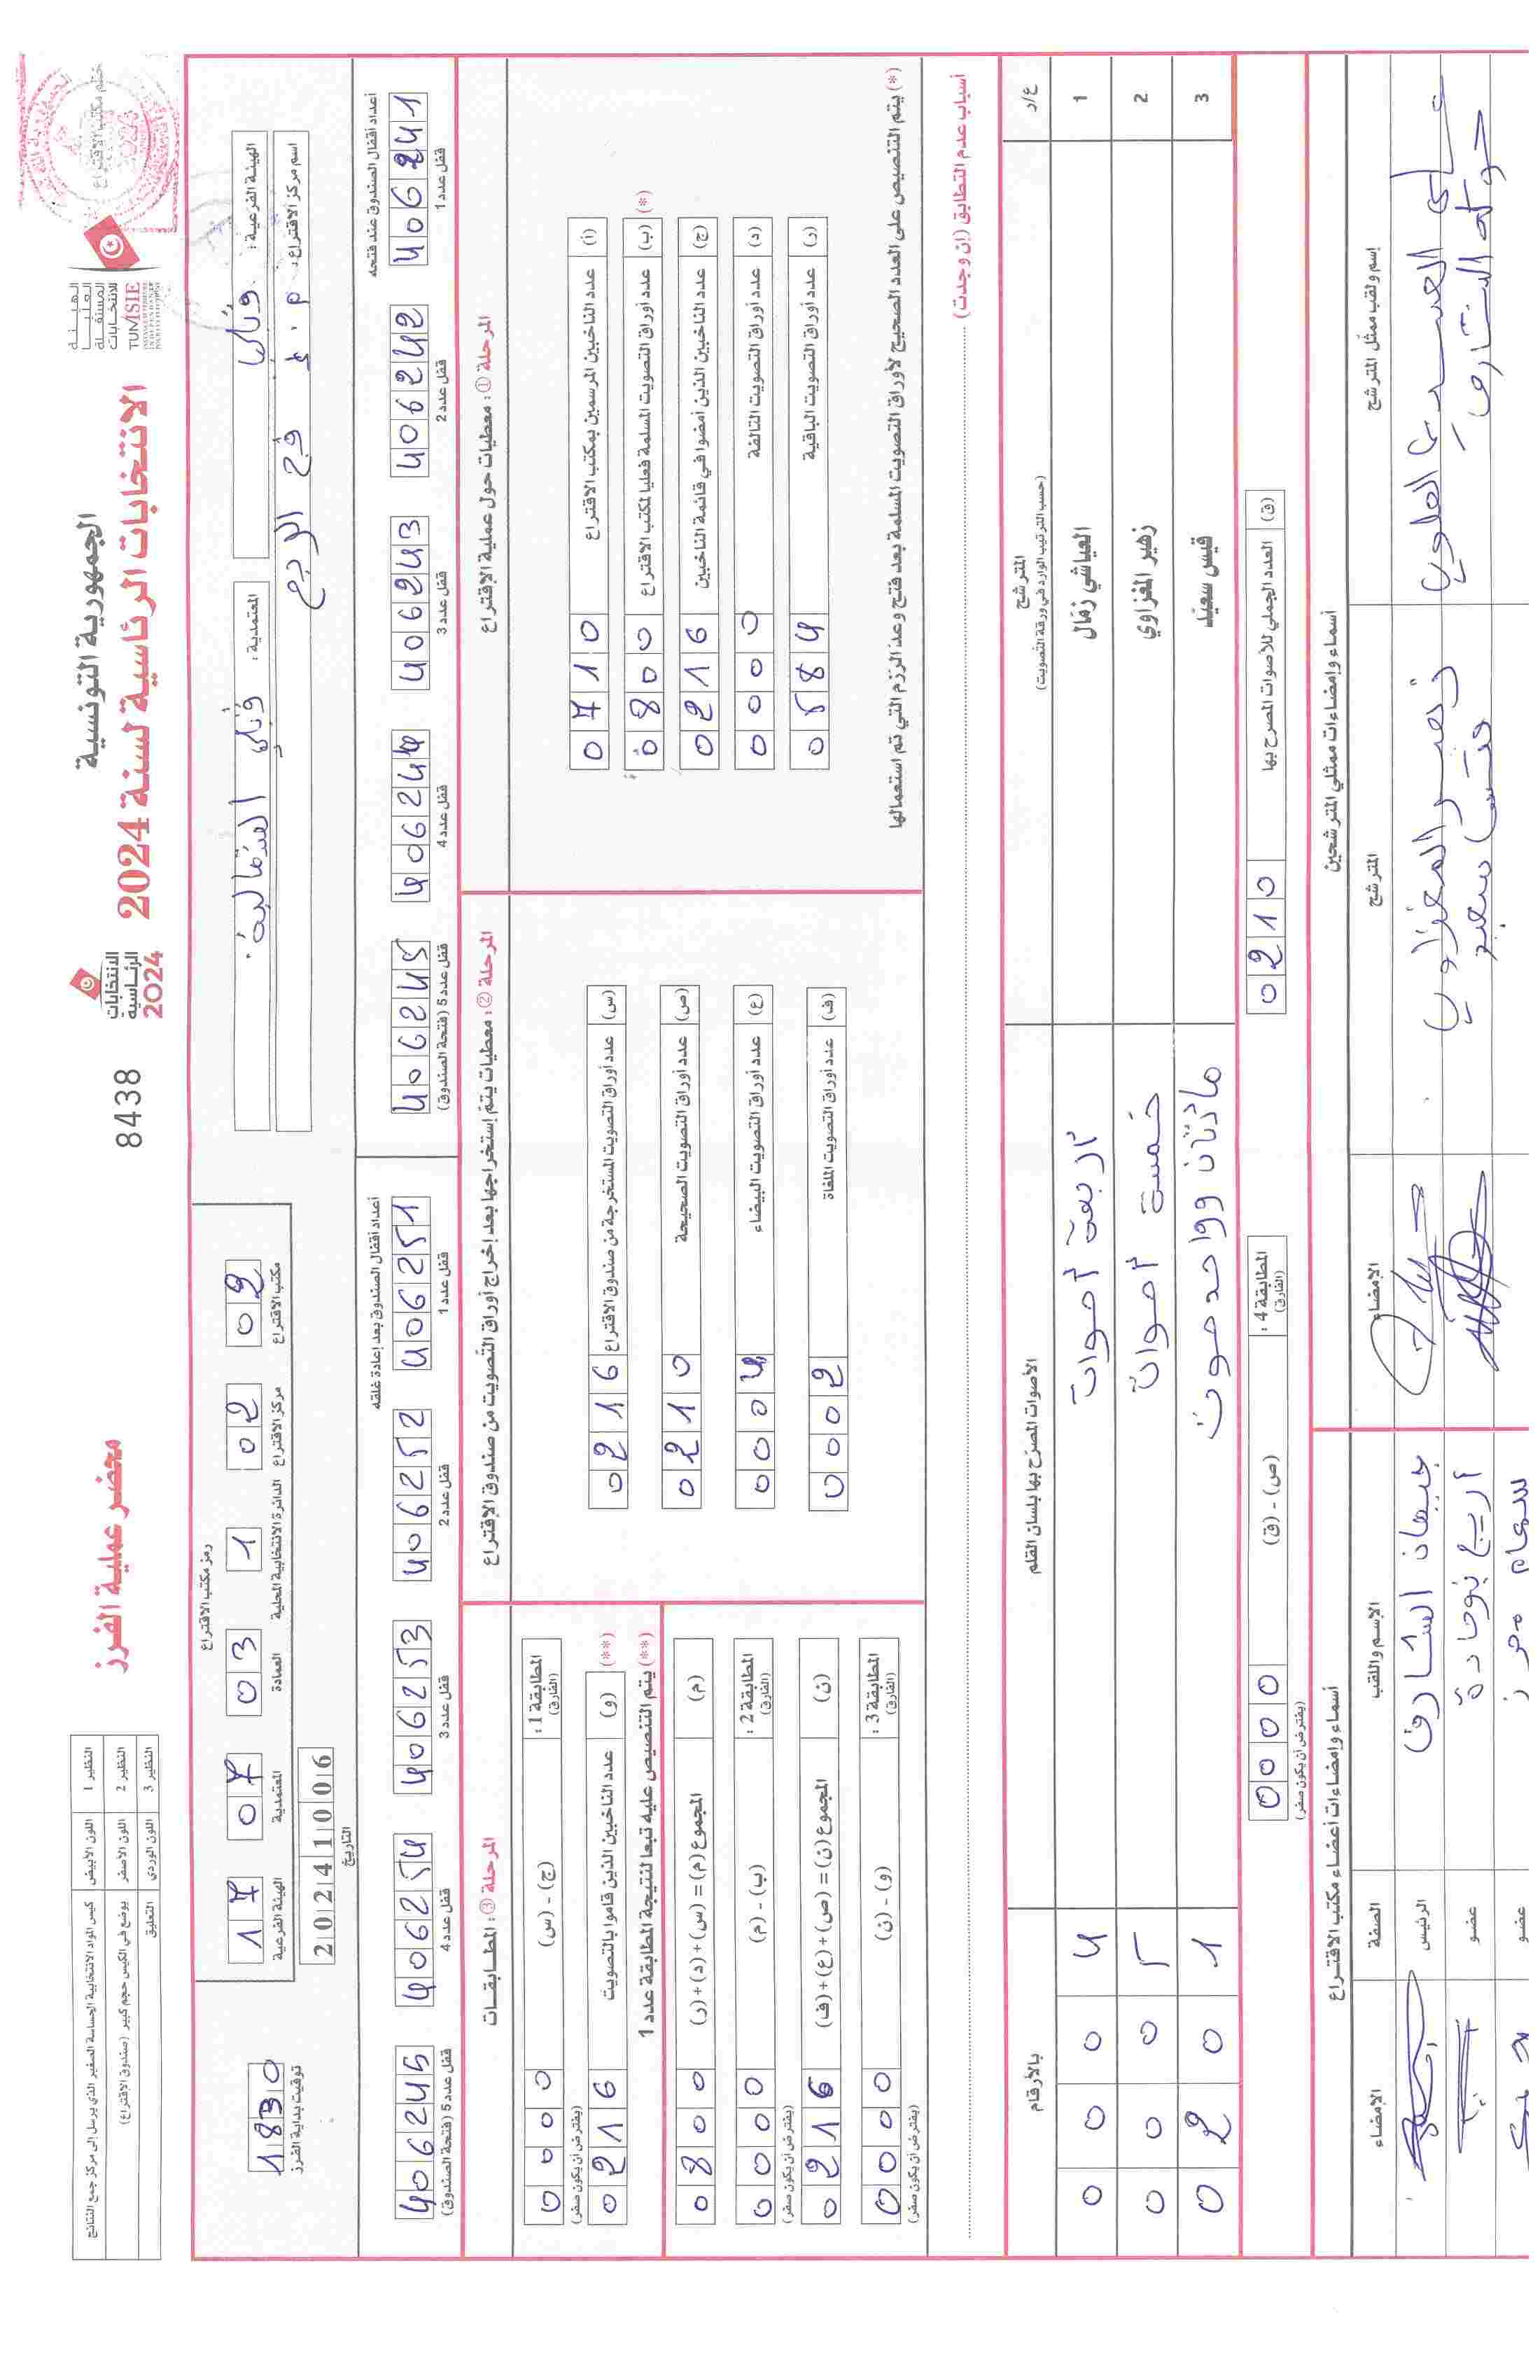 الجمهورية التونسية
الانتخابات الرئاسية لسنة 2024
الهيئة العليا المستقلة للانتخابات
TUNISIE
ختم مكتب الاقتراع
الانتخابات الرئاسية 2024
8438
محضر عملية الفرز
النظير 1 اللون الأبيض كيس المواد الانتخابية الحساسة الصغير الذي يرسل إلى مركز جمع النتائج
النظير 2 اللون الأصفر يوضع في الكيس حجم كبير (صندوق الاقتراع)
النظير 3 اللون الوردي التعليق
الهيئة الفرعية: قبلي
المعتمدية: قبلي الشمالية
اسم مركز الاقتراع:
رمز مكتب الاقتراع
مكتب الاقتراع 02
مركز الاقتراع 02
الدائرة الانتخابية المحلية 1
العمادة 03
المعتمدية 07
الهيئة الفرعية 17
التاريخ 20241006
توقيت بداية الفرز 1830
أعداد أقفال الصندوق عند فتحه
406241 قفل عدد 1
406242 قفل عدد 2
406243 قفل عدد 3
406244 قفل عدد 4
406245 قفل عدد 5 (فتحة الصندوق)
أعداد أقفال الصندوق بعد إعادة غلقه
406251 قفل عدد 1
406252 قفل عدد 2
406253 قفل عدد 3
406254 قفل عدد 4
406245 قفل عدد 5 (فتحة الصندوق)
المرحلة ①: معطيات حول عملية الاقتراع
(أ) عدد الناخبين المرسمين بمكتب الاقتراع 0710
(ب) عدد أوراق التصويت المسلمة فعليا لمكتب الاقتراع 0800 (*)
(ج) عدد الناخبين الذين أمضوا في قائمة الناخبين 0216
(د) عدد أوراق التصويت التالفة 0000
(ر) عدد أوراق التصويت الباقية 0584
(*) يتم التنصيص على العدد الصحيح لأوراق التصويت المسلمة بعد فتح وعدّ الرزم التي تم استعمالها
المرحلة ②: معطيات يتم إستخراجها بعد إخراج أوراق التصويت من صندوق الإقتراع
(س) عدد أوراق التصويت المستخرجة من صندوق الاقتراع 0216
(ص) عدد أوراق التصويت الصحيحة 0210
(ع) عدد أوراق التصويت البيضاء 0004
(ف) عدد أوراق التصويت الملغاة 0002
المرحلة ③: المطابقات
المطابقة 1: (الفارق) (ج) - (س) 0000
(يفترض أن يكون صفر)
(و) عدد الناخبين الذين قاموا بالتصويت 0216 (**)
(**) يتم التنصيص عليه تبعا لنتيجة المطابقة عدد 1
(م) المجموع (م) = (س) + (د) + (ر) 0800
المطابقة 2: (الفارق) (ب) - (م) 0000
(يفترض أن يكون صفر)
(ن) المجموع (ن) = (ص) + (ع) + (ف) 0216
المطابقة 3: (الفارق) (و) - (ن) 0000
(يفترض أن يكون صفر)
أسباب عدم التطابق (إن وجدت)
ع/د المترشح (حسب الترتيب الوارد في ورقة التصويت) الأصوات المصرح بها بلسان القلم بالأرقام
1 العياشي زمّال اربعة اصوات 0004
2 زهير المغزاوي خمسة اصوات 0005
3 قيس سعيّد مائتان وواحد صوت 0201
(ق) العدد الجملي للأصوات المصرح بها 0210
المطابقة 4: (الفارق) (ص) - (ق) 0000
(يفترض أن يكون صفر)
أسماء وإمضاءات ممثلي المترشحين
إسم ولقب ممثل المترشح المترشح الإمضاء
زهير المغزاوي
قيس سعيد
أسماء وإمضاءات أعضاء مكتب الاقتراع
الإسم واللقب الصفة الإمضاء
جيهان الشارف الرئيس
أريج بوحادة عضو
سهام محرز عضو